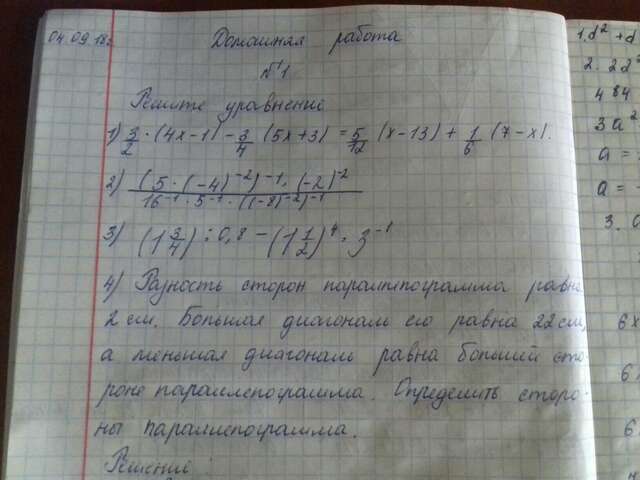 04.09.18г.
Домашняя работа
№1
Решите уравнение
1) 3/2 · (4x-1) - 3/4 (5x+3) = 5/12 (x-13) + 1/6 (7-x).
2) (5·(-4)^-2)^-1 · (-2)^-2 / 16^-1 · 5^-1 · ((-8)^-2)^-1
3) (1 3/4) : 0,8 - (1 1/2)^4 · 3^-1
4) Разность сторон параллелограмма равна
2 см. Большая диагональ его равна 22 см,
а меньшая диагональ равна большей сто-
роне параллелограмма. Определить сторо-
ны параллелограмма.
Решение
1. d² + d
2. 2d²
484
3a²
a =
a =
3.
6x
6
6